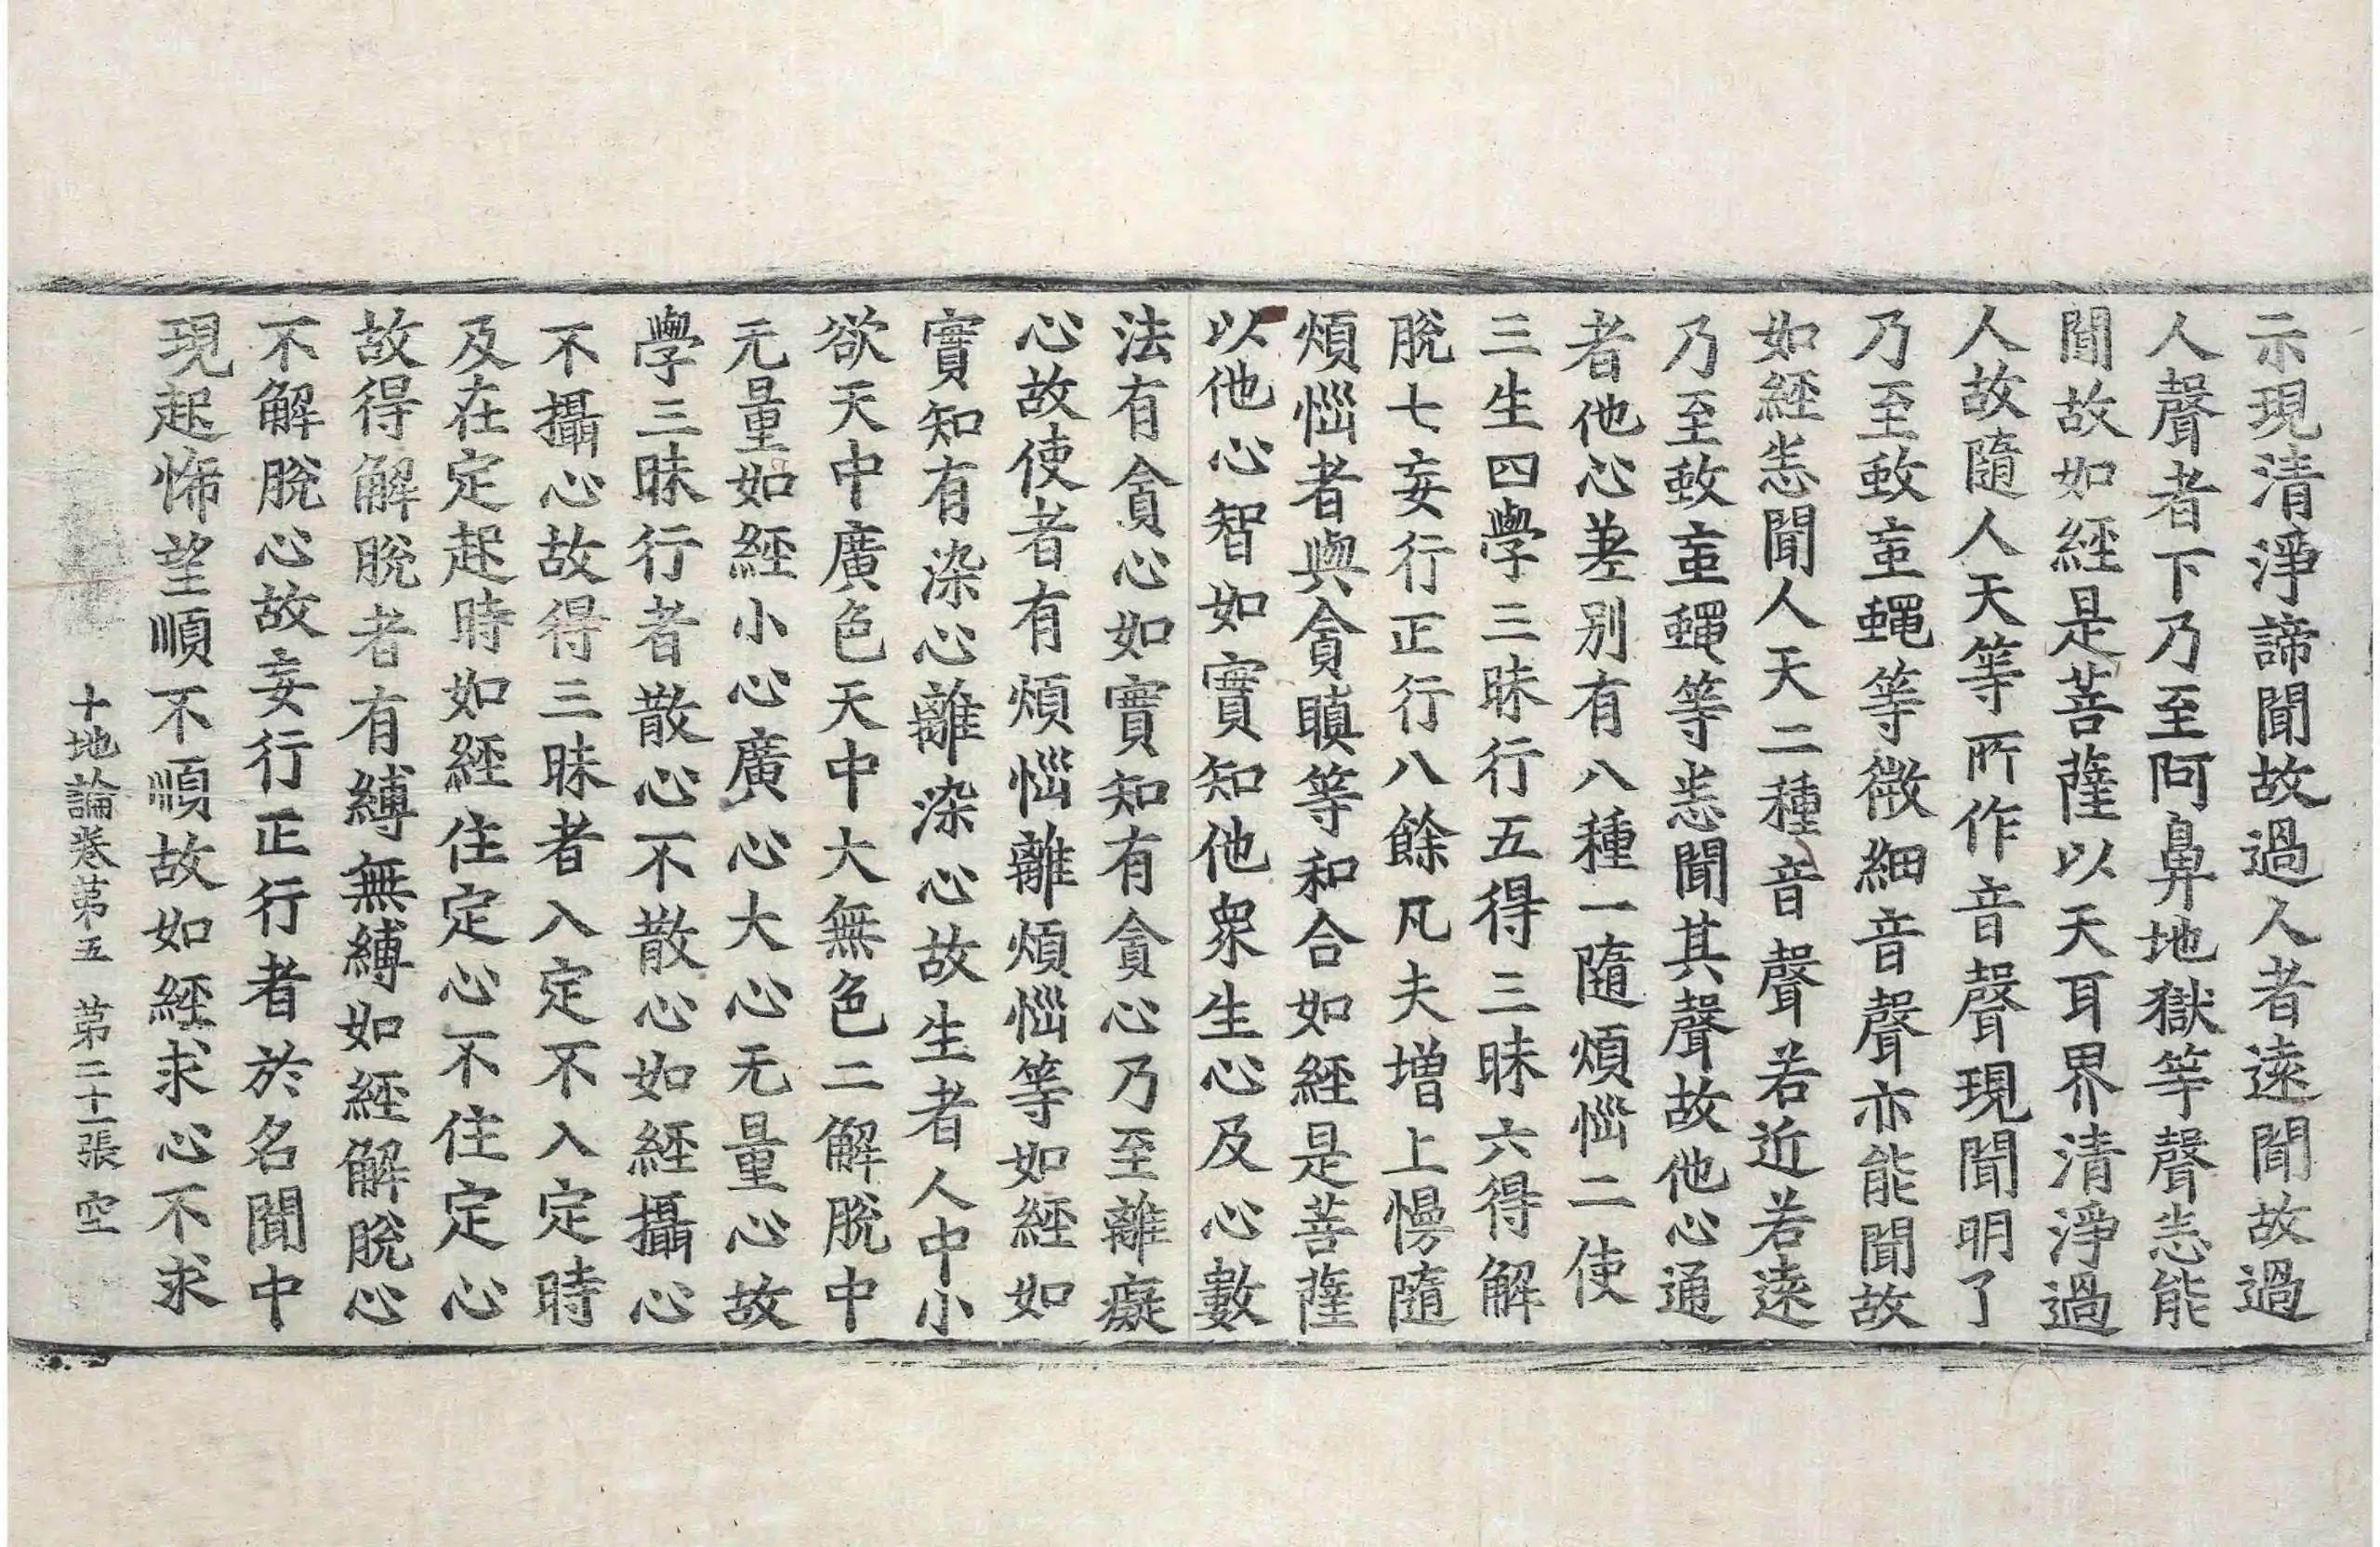 示現清淨諦聞故過人者遠聞故過
人聲者下乃至阿鼻地獄等聲悉能
聞故如經是菩薩以天耳界清淨過
人故隨人天等所作音聲現聞明了
乃至蚊䖟蠅等微細音聲亦能聞故
如經悉聞人天二種音聲若近若遠
乃至蚊䖟蠅等悉聞其聲故他心通
者他心差別有八種一隨煩惱二使
三生四學三昧行五得三昧六得解
脫七妄行正行八餘凡夫增上慢隨
煩惱者與貪瞋等和合如經是菩薩
以他心智如實知他衆生心及心數
法有貪心如實知有貪心乃至離癡
心故使者有煩惱離煩惱等如經如
實知有染心離染心故生者人中小
欲天中廣色天中大無色二解脫中
无量如經小心廣心大心无量心故
學三昧行者散心不散心如經攝心
不攝心故得三昧者入定不入定時
及在定起時如經住定心不住定心
故得解脫者有縛無縛如經解脫心
不解脫心故妄行正行者於名聞中
現起悕望順不順故如經求心不求
十地論卷第五 第二十一張 空